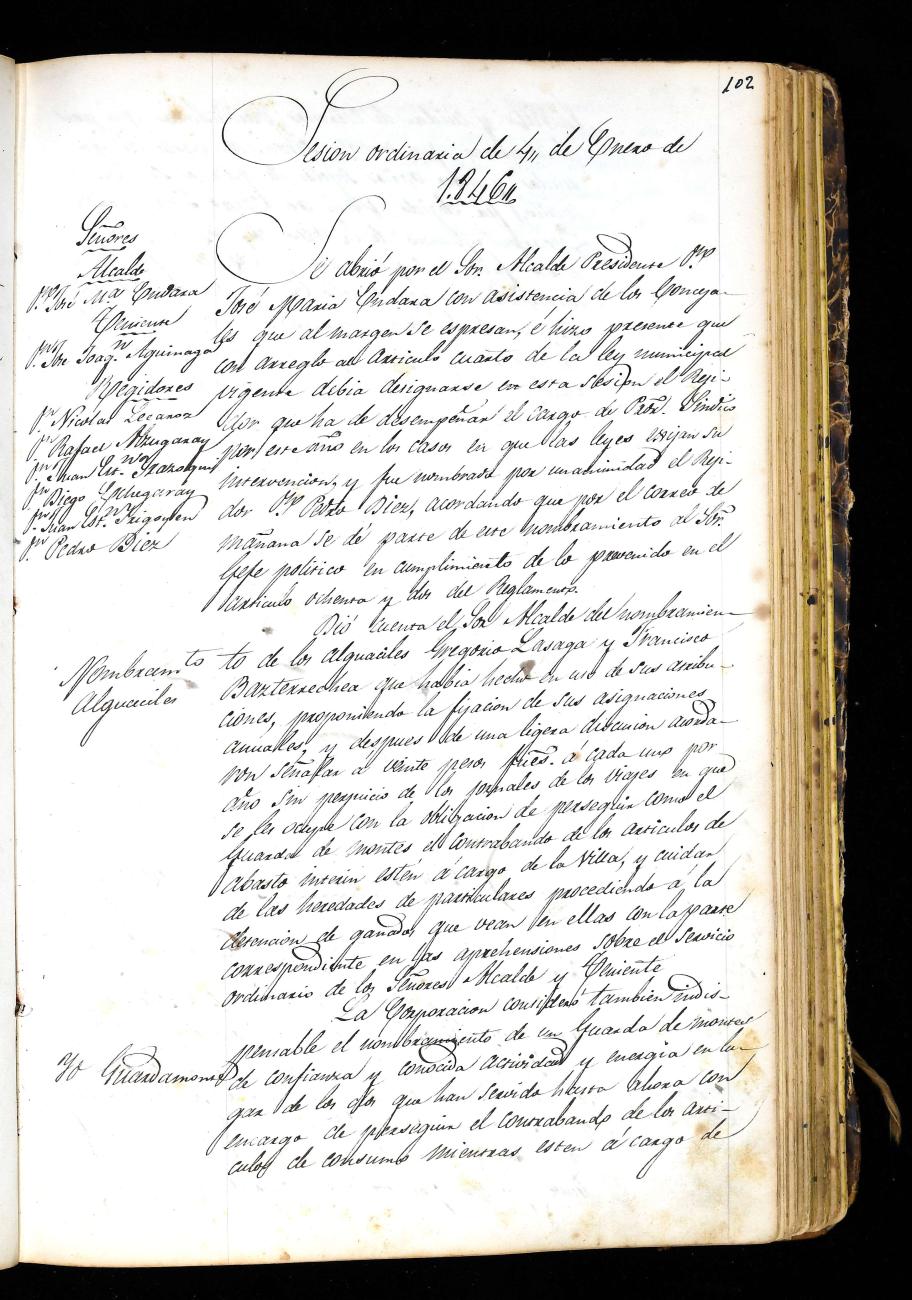 102
Sesion ordinaria de 4,, de Enero de
1.846,,
Señores
Alcalde
D.n José M.a Endara
Teniente
D.n Joaq.n Aguinaga
Regidores
D.n Nicolas Lecaroz
D.n Rafael Alzugaray
D.n Juan Est.n
D.n Diego Echegaray
D.n Juan Est.n Irigoyen
D.n Pedro Diez
Se abrió por el Sor. Alcalde Presidente D.n
José Maria Endara con asistencia de los Conceja-
les que al margen se espresan, é hizo presente que
con arreglo al Articulo cuarto de la ley municipal
vigente dibia designarse en esta sesion el Reji-
dor que ha de desempeñar el cargo de Pror. Sindico
por este año en los casos en que las leyes exijan su
intervencion, y fue nombrado por unanimidad el Reji-
dor D.n Pedro Diez, acordando que por el correo de
mañana se dé parte de este nombramiento al Sor.
Gefe politico en cumplimiento de lo prevenido en el
articulo ochenta y dos del Reglamento.
Nombramto
Alguaciles
Dió cuenta el Sor. Alcalde del nombramien-
to de los alguaciles Gregorio Lasaga y Francisco
Bazterrechea que habia hecho en uso de sus atribu-
ciones, proponiendo la fijacion de sus asignaciones
anuales, y despues de una ligera discusion acorda-
ron señalar a veinte pesos ftes. á cada uno por
año sin perjuicio de los jornales de los viajes en que
se les ocupe con la obligacion de perseguir como el
Guarda de montes el contrabando de los articulos de
abasto interin estén á cargo de la Villa, y cuidar
de las heredades de particulares procediendo á la
detencion de ganados que vean en ellas con la parte
correspondiente en las aprehensiones sobre el servicio
ordinario de los Señores Alcalde y Teniente
Yd Guardamonte
La Corporacion consideró tambien indis-
pensable el nombramiento de un Guarda de montes
de confianza y conocida actividad y energia en lu-
gar de los dos que han servido hasta ahora con
encargo de perseguir el contrabando de los arti-
culos de consumo mientras esten á cargo de